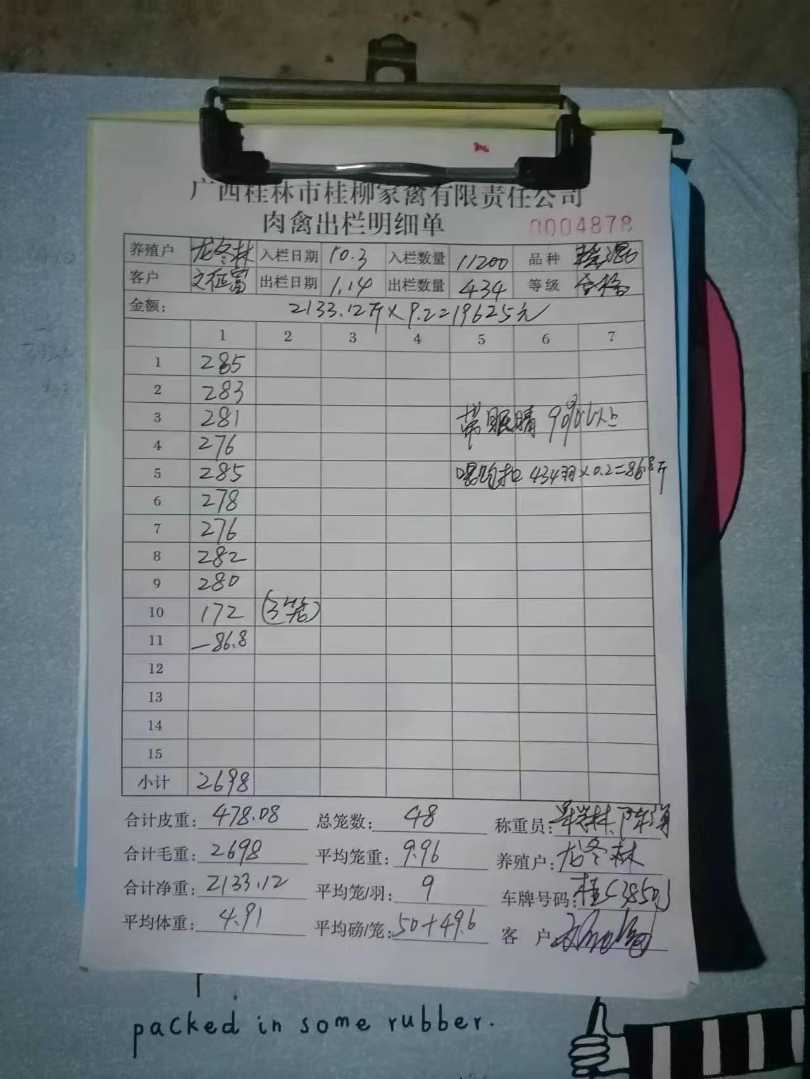 广西桂林市桂柳家禽有限责任公司
肉禽出栏明细单 0004878
养殖户 龙冬林 入栏日期 10.3 入栏数量 11200 品种
客户 文征富 出栏日期 1.14 出栏数量 434 等级 合格
金额: 2133.12斤×9.2=19625元
1 2 3 4 5 6 7
1 285
2 283
3 281 带眼睛 90%以上
4 276
5 285 喂饱扣 434羽×0.2=86.8斤
6 278
7 276
8 282
9 280
10 172 (3笼)
11 -86.8
12
13
14
15
小计 2698
合计皮重: 478.08 总笼数: 48 称重员:
合计毛重: 2698 平均笼重: 9.96 养殖户: 龙冬林
合计净重: 2133.12 平均笼/羽: 9 车牌号码: 桂C3850J
平均体重: 4.91 平均磅/笼: 50+49.6 客户
packed in some rubber.